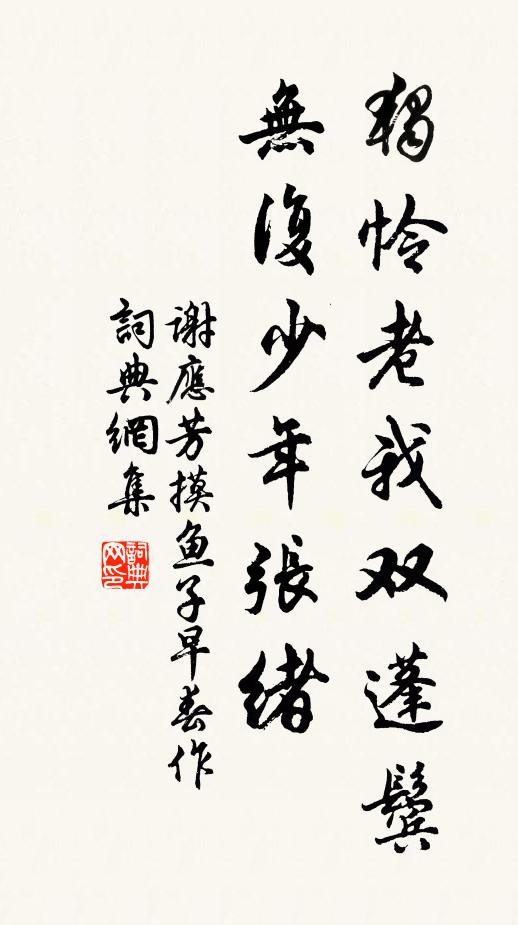 獨怜老我双蓬鬓
無復少年張緒
謝應芳摸鱼子早春作
詞典網集
詞典网印